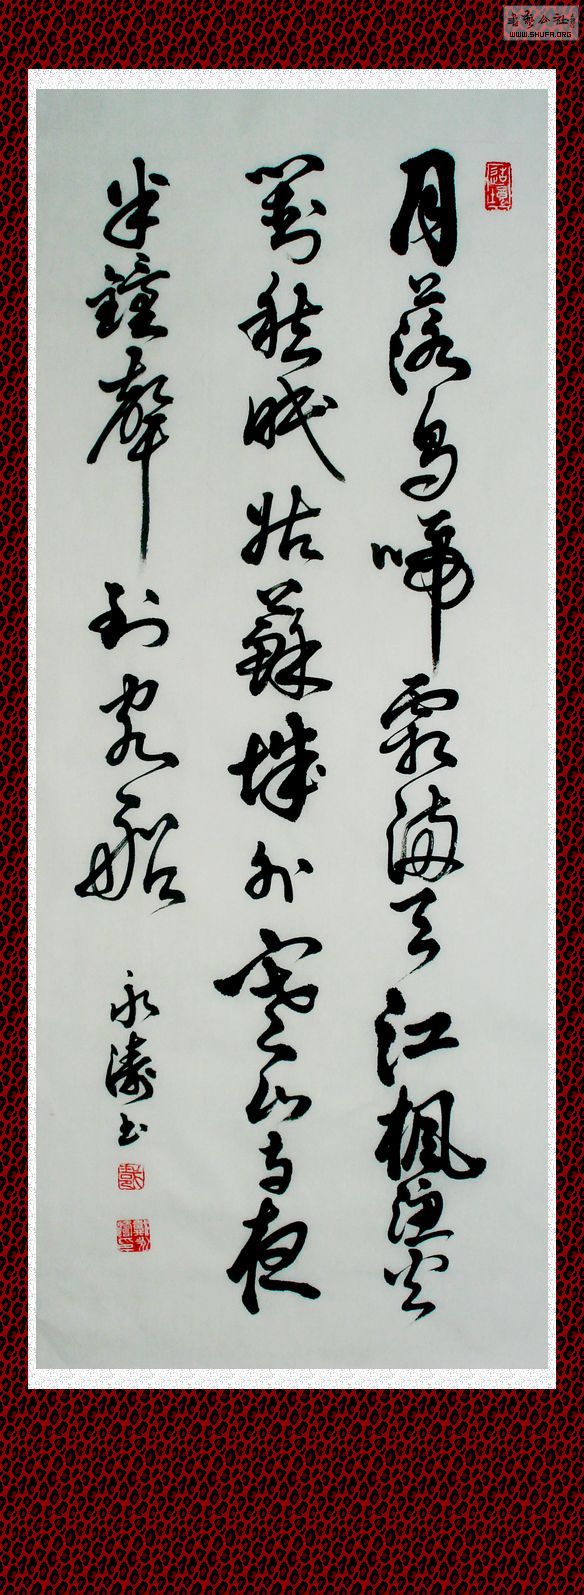 月落烏啼霜滿天江楓漁火
對愁眠姑蘇城外寒山寺夜
半鐘聲到客船
永濤書
WWW.SHUFA.ORG